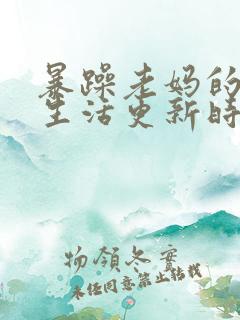 暴躁老妈的
生活更新时
物领冬寒
未经同意禁止转载